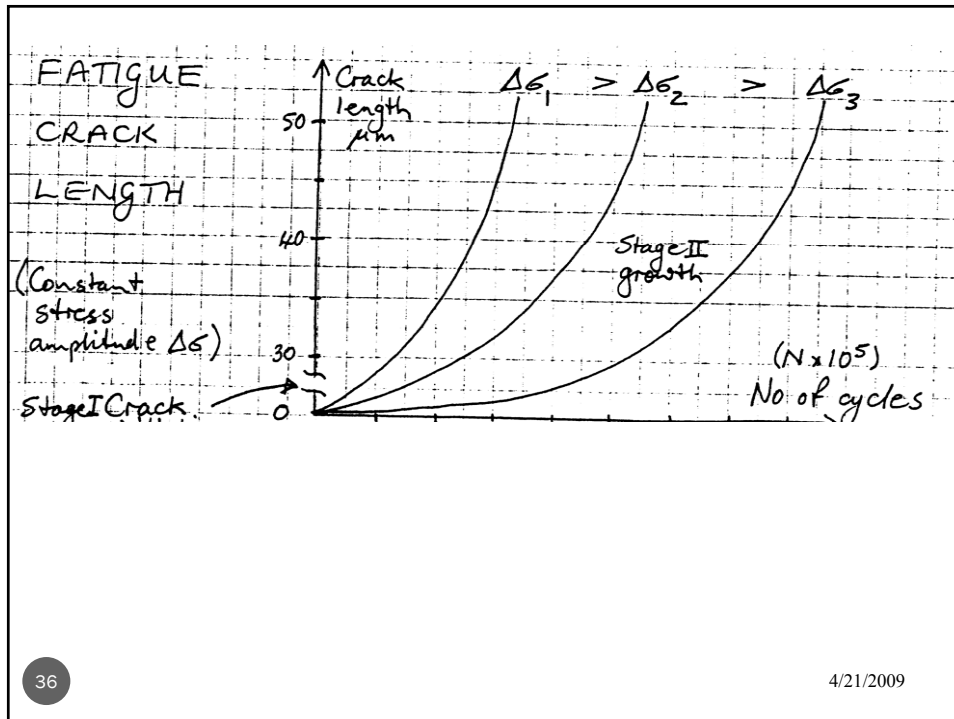 FATIGUE
CRACK
LENGTH
(Constant
stress
amplitude Δσ)
Stage I Crack
Crack
length
μm
50
40
30
0
Δσ₁ > Δσ₂ > Δσ₃
Stage II
growth
(N x 10⁵)
No of cycles
36
4/21/2009